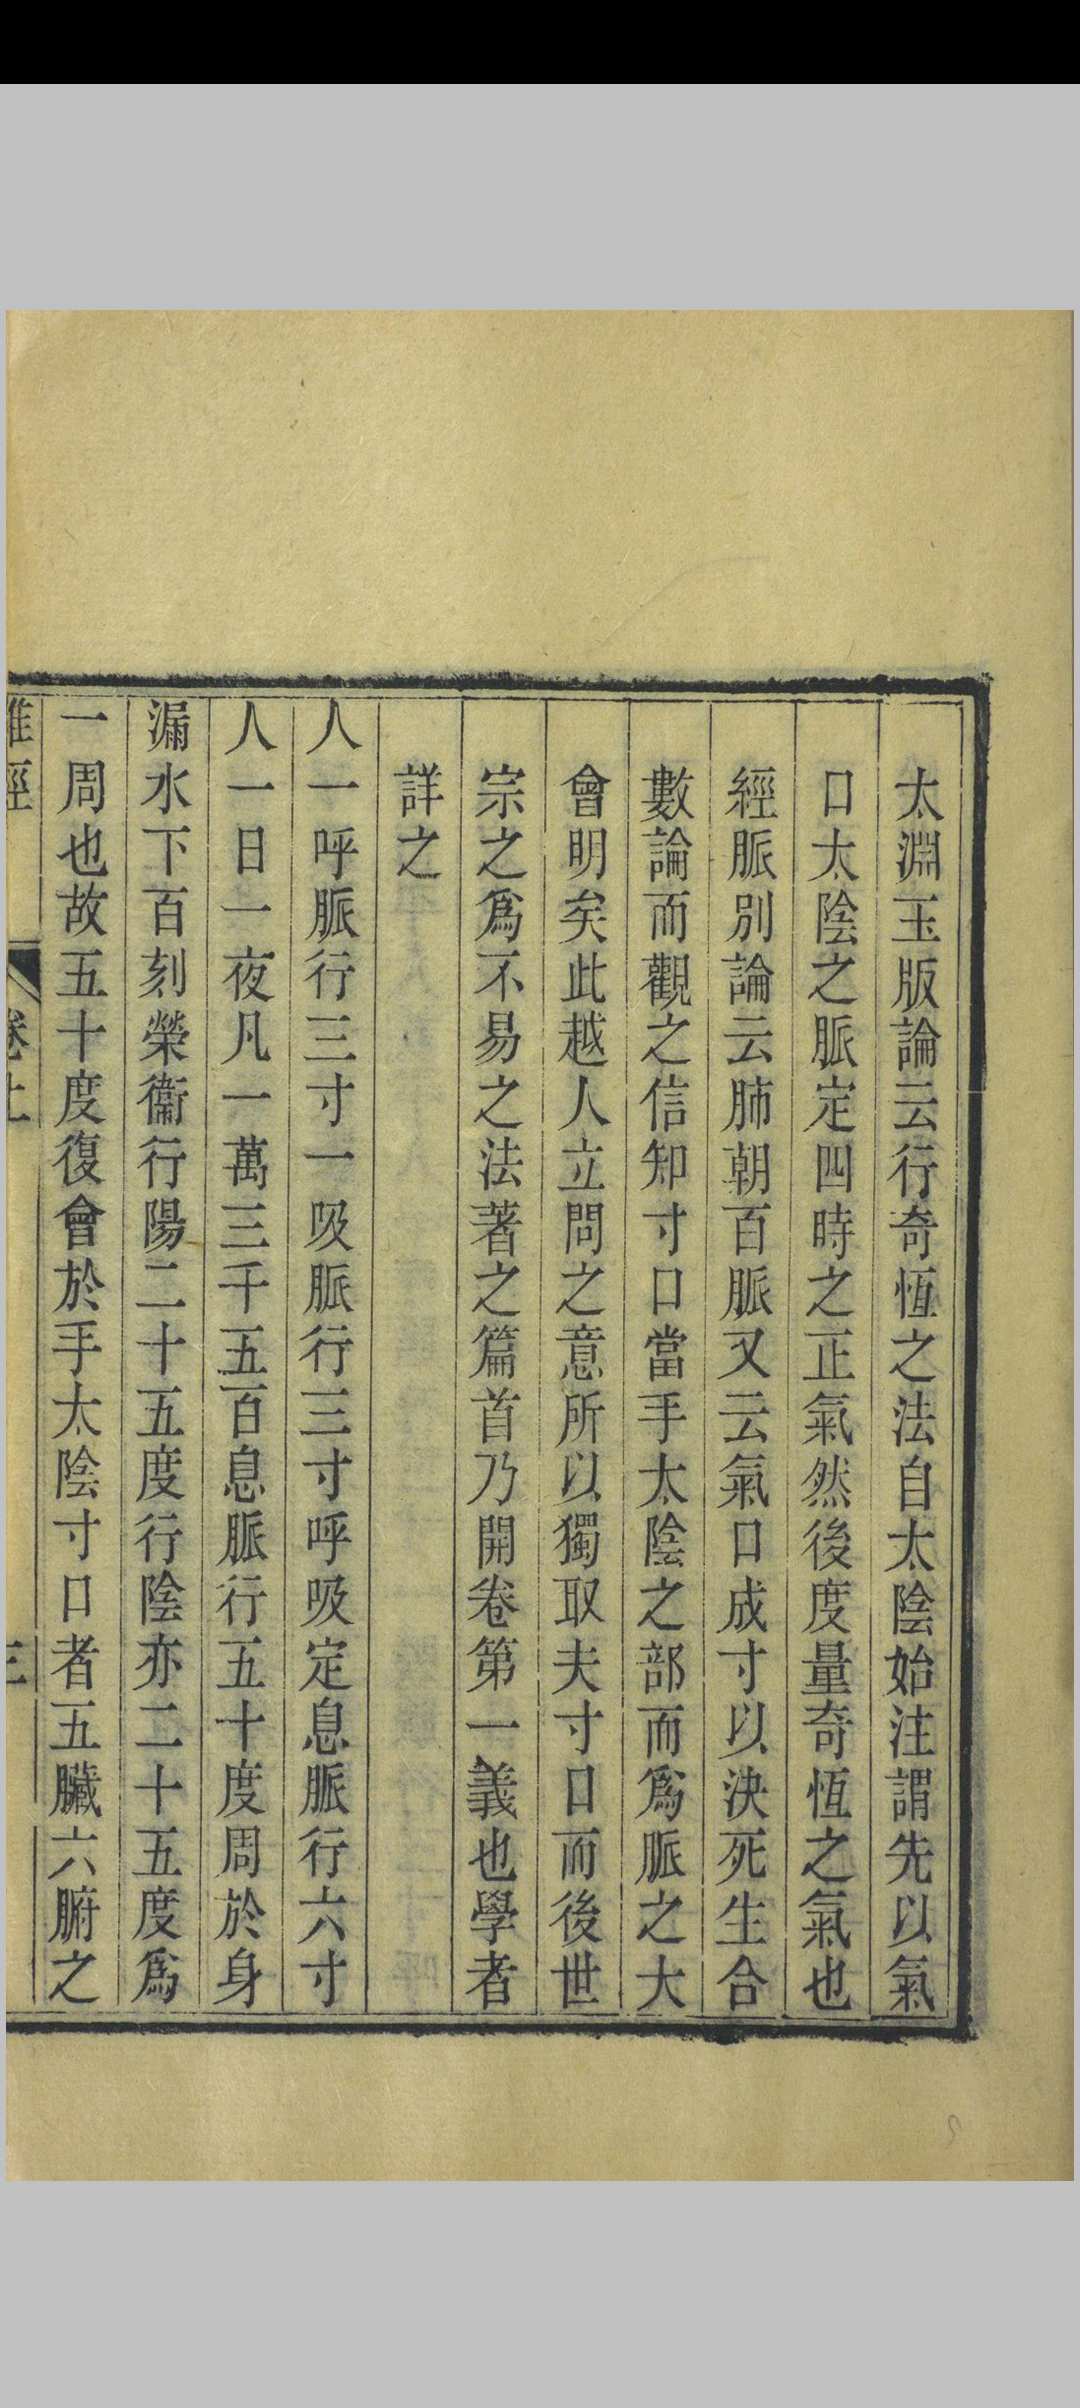 太淵玉版論云行奇恆之法自太陰始注謂先以氣
口太陰之脈定四時之正氣然後度量奇恆之氣也
經脈別論云肺朝百脈又云氣口成寸以決死生合
數論而觀之信知寸口當手太陰之部而爲脈之大
會明矣此越人立問之意所以獨取夫寸口而後世
宗之爲不易之法著之篇首乃開卷第一義也學者
詳之
人一呼脈行三寸一吸脈行三寸呼吸定息脈行六寸
人一日一夜凡一萬三千五百息脈行五十度周於身
漏水下百刻榮衞行陽二十五度行陰亦二十五度爲
一周也故五十度復會於手太陰寸口者五臟六腑之
經 卷上 三